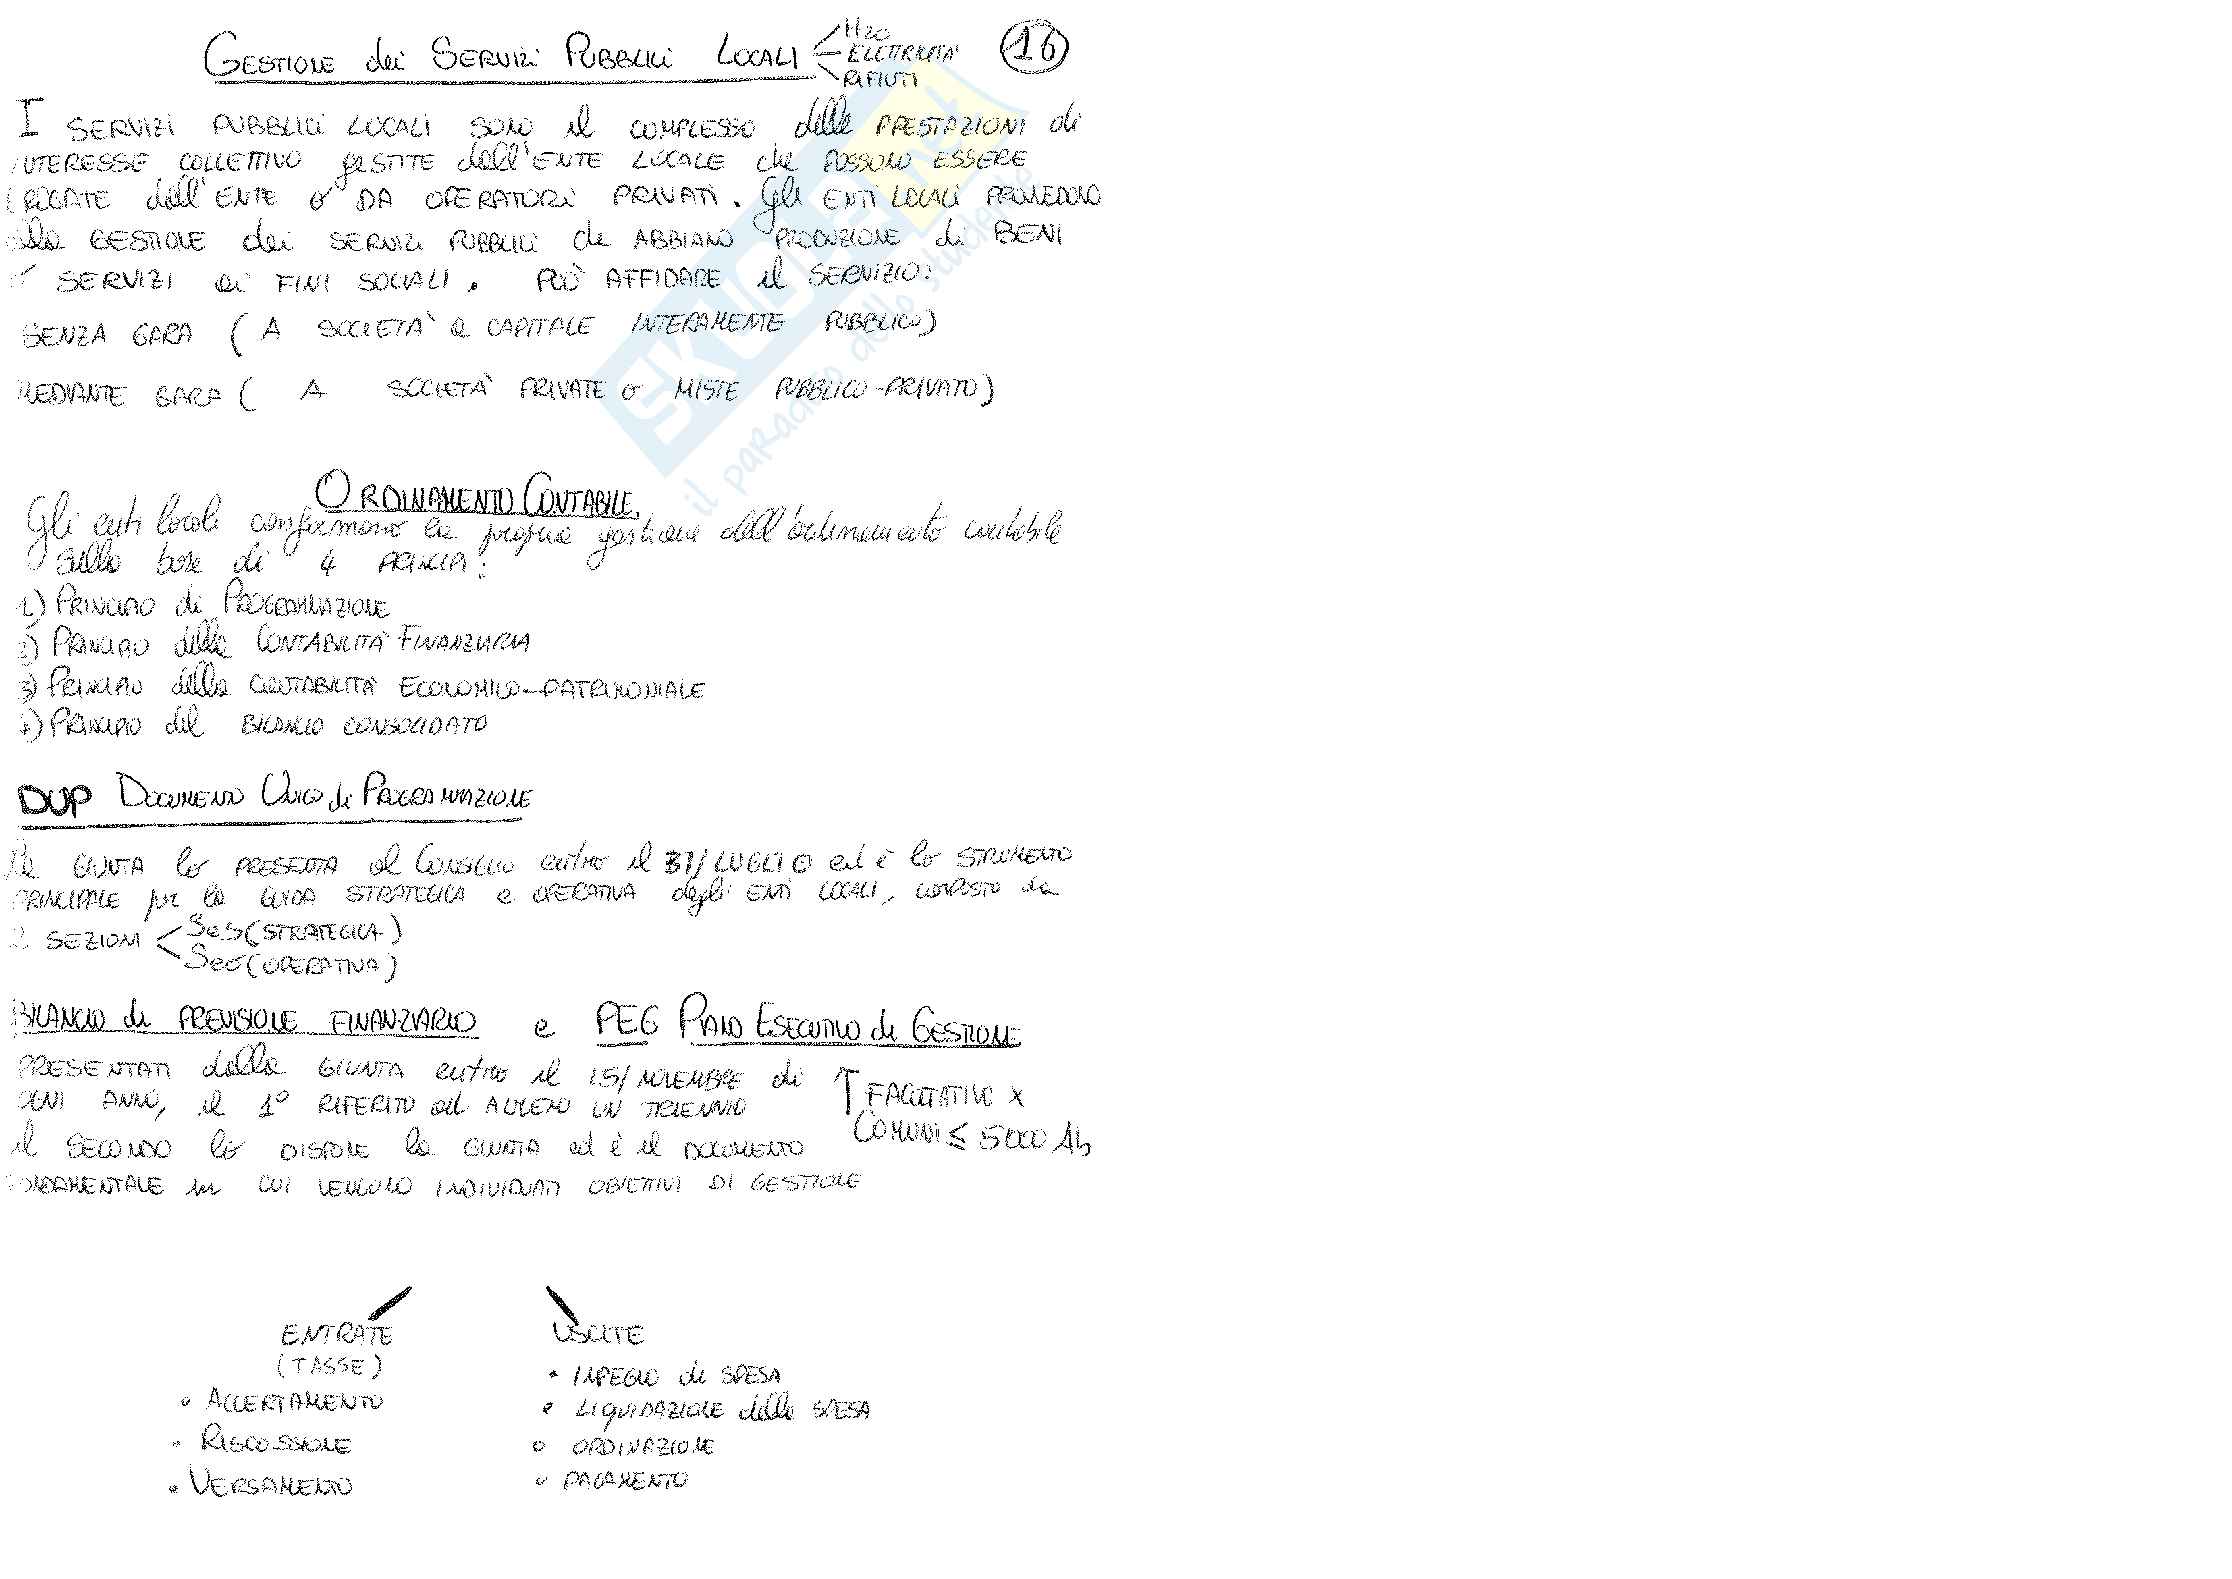 GESTIONE dei SERVIZI PUBBLICI LOCALI
H2O
ELETTRICITÀ
RIFIUTI
16
I SERVIZI PUBBLICI LOCALI SONO il COMPLESSO delle PRESTAZIONI di
INTERESSE COLLETTIVO gESTITE dall'ENTE LOCALE che POSSONO ESSERE
EROGATE dall'ENTE o DA OPERATORI PRIVATI. Gli ENTI LOCALI PROVVEDONO
alla GESTIONE dei SERVIZI PUBBLICI che ABBIANO PRODUZIONE di BENI
e SERVIZI ai FINI SOCIALI. PUÒ AFFIDARE il SERVIZIO:
SENZA GARA (A SOCIETÀ a CAPITALE INTERAMENTE PUBBLICO)
MEDIANTE GARA (A SOCIETÀ PRIVATE o MISTE PUBBLICO-PRIVATO)
ORDINAMENTO CONTABILE
Gli enti locali conformano la propria gestione dell'ordinamento contabile
sulla base di 4 PRINCIPI:
1) PRINCIPIO di PROGRAMMAZIONE
2) PRINCIPIO della CONTABILITÀ FINANZIARIA
3) PRINCIPIO della CONTABILITÀ ECONOMICO-PATRIMONIALE
4) PRINCIPIO del BILANCIO CONSOLIDATO
DUP DOCUMENTO UNICO di PROGRAMMAZIONE
La GIUNTA lo PRESENTA al CONSIGLIO entro il 31/LUGLIO ed è lo STRUMENTO
PRINCIPALE per la GUIDA STRATEGICA e OPERATIVA degli ENTI LOCALI, COMPOSTO da
2 SEZIONI
SeS (STRATEGICA)
SeO (OPERATIVA)
BILANCIO di PREVISIONE FINANZIARIO e PEG PIANO ESECUTIVO di GESTIONE
PRESENTATI dalla GIUNTA entro il 15/NOVEMBRE di
OGNI ANNO, il 1° RIFERITO ad ALMENO UN TRIENNIO
↑ FACOLTATIVO x
COMUNI ≤ 5000 Ab
il SECONDO lo DISPONE la GIUNTA ed è il DOCUMENTO
FONDAMENTALE in CUI VENGONO INDIVIDUATI OBIETTIVI DI GESTIONE
ENTRATE
(TASSE)
• ACCERTAMENTO
• RISCOSSIONE
• VERSAMENTO
USCITE
• IMPEGNO di SPESA
• LIQUIDAZIONE della SPESA
• ORDINAZIONE
• PAGAMENTO
SKUOLA.net
il paradiso dello studente